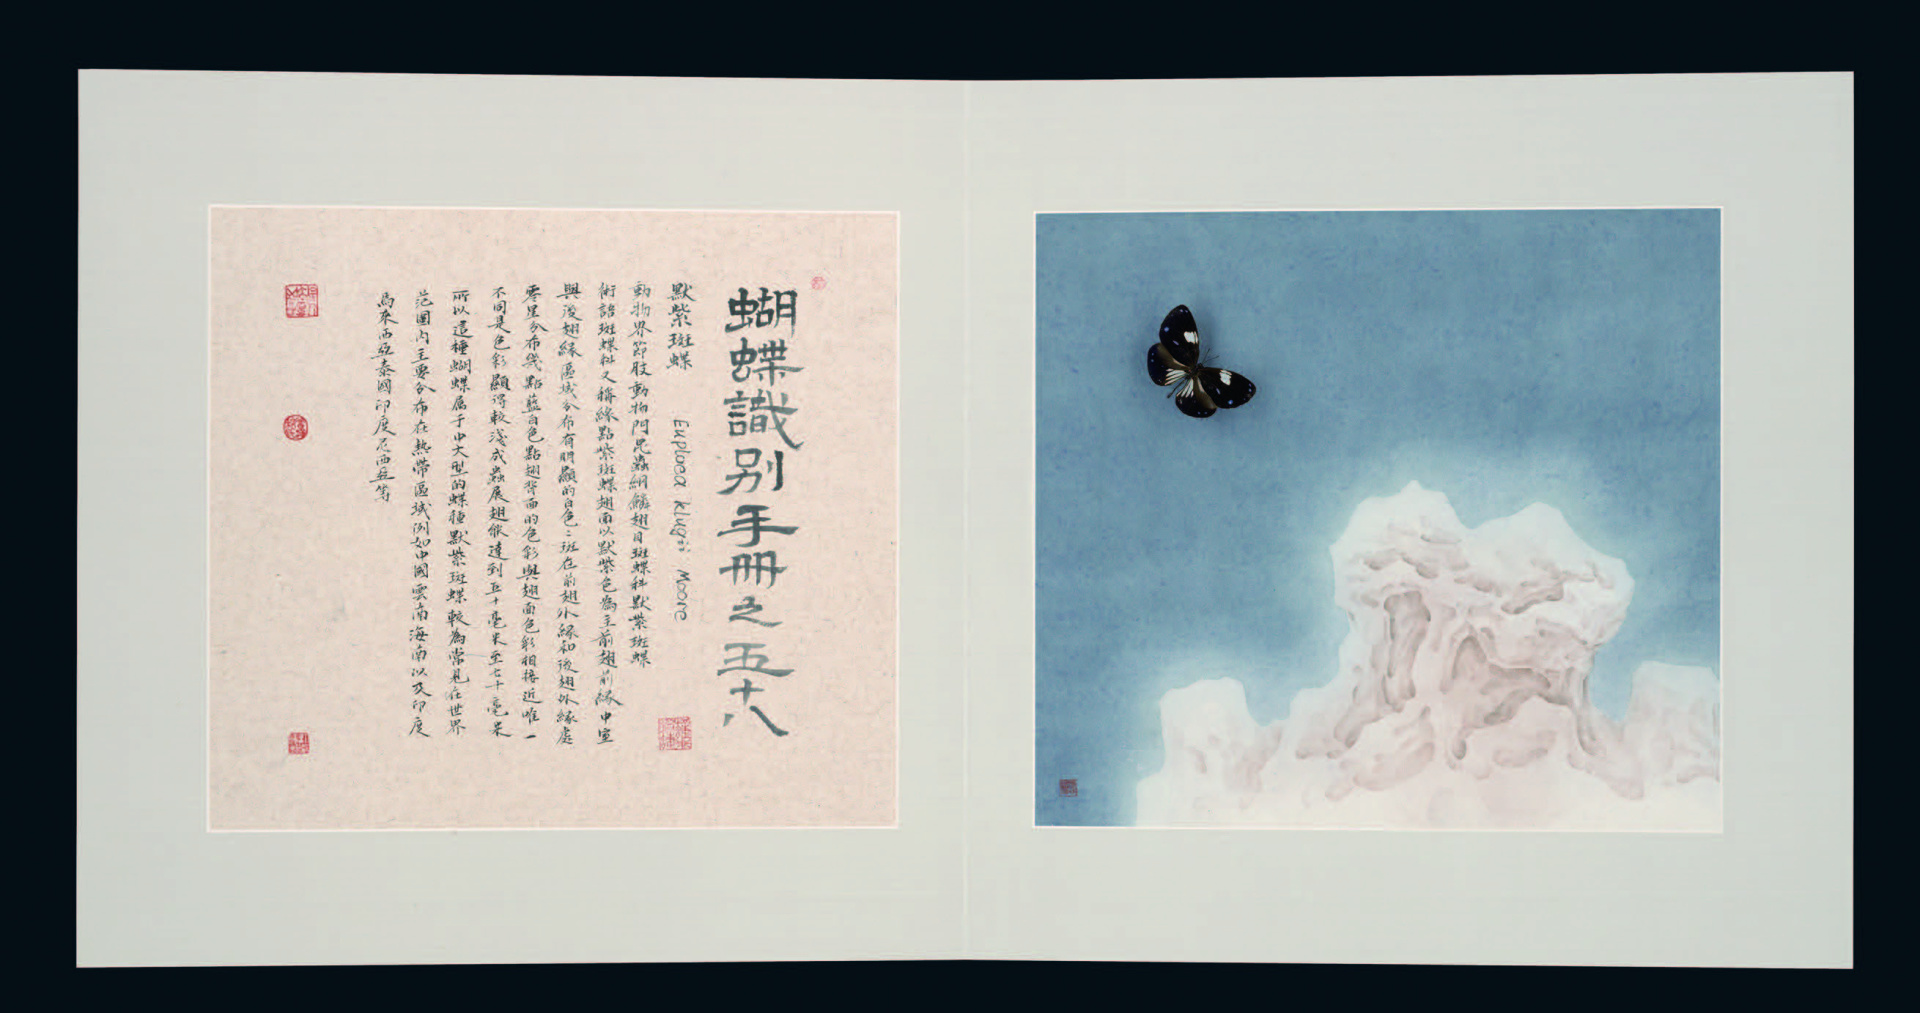 蝴蝶識别手冊之五十八
默紫斑蝶 Euploea klugii Moore
動物界節肢動物門昆蟲綱鱗翅目斑蝶科默紫斑蝶
術語斑蝶 又稱緣點紫斑蝶翅面以默紫色為主前翅前緣中室
與後翅緣區域分布有明顯的白色斑在前翅外緣和後翅外緣處
零星分布幾點藍白色點翅背面的色彩與翅面色彩相接近唯一
不同是色彩顯得較淺成蟲展翅能達到五十毫米至七十毫米
所以這種蝴蝶属于中大型的蝶種默紫斑蝶較為常見在世界
范圍内主要分布在熱帶區域例如中國雲南海南以及印度
馬來西亞泰國印度尼西亞等